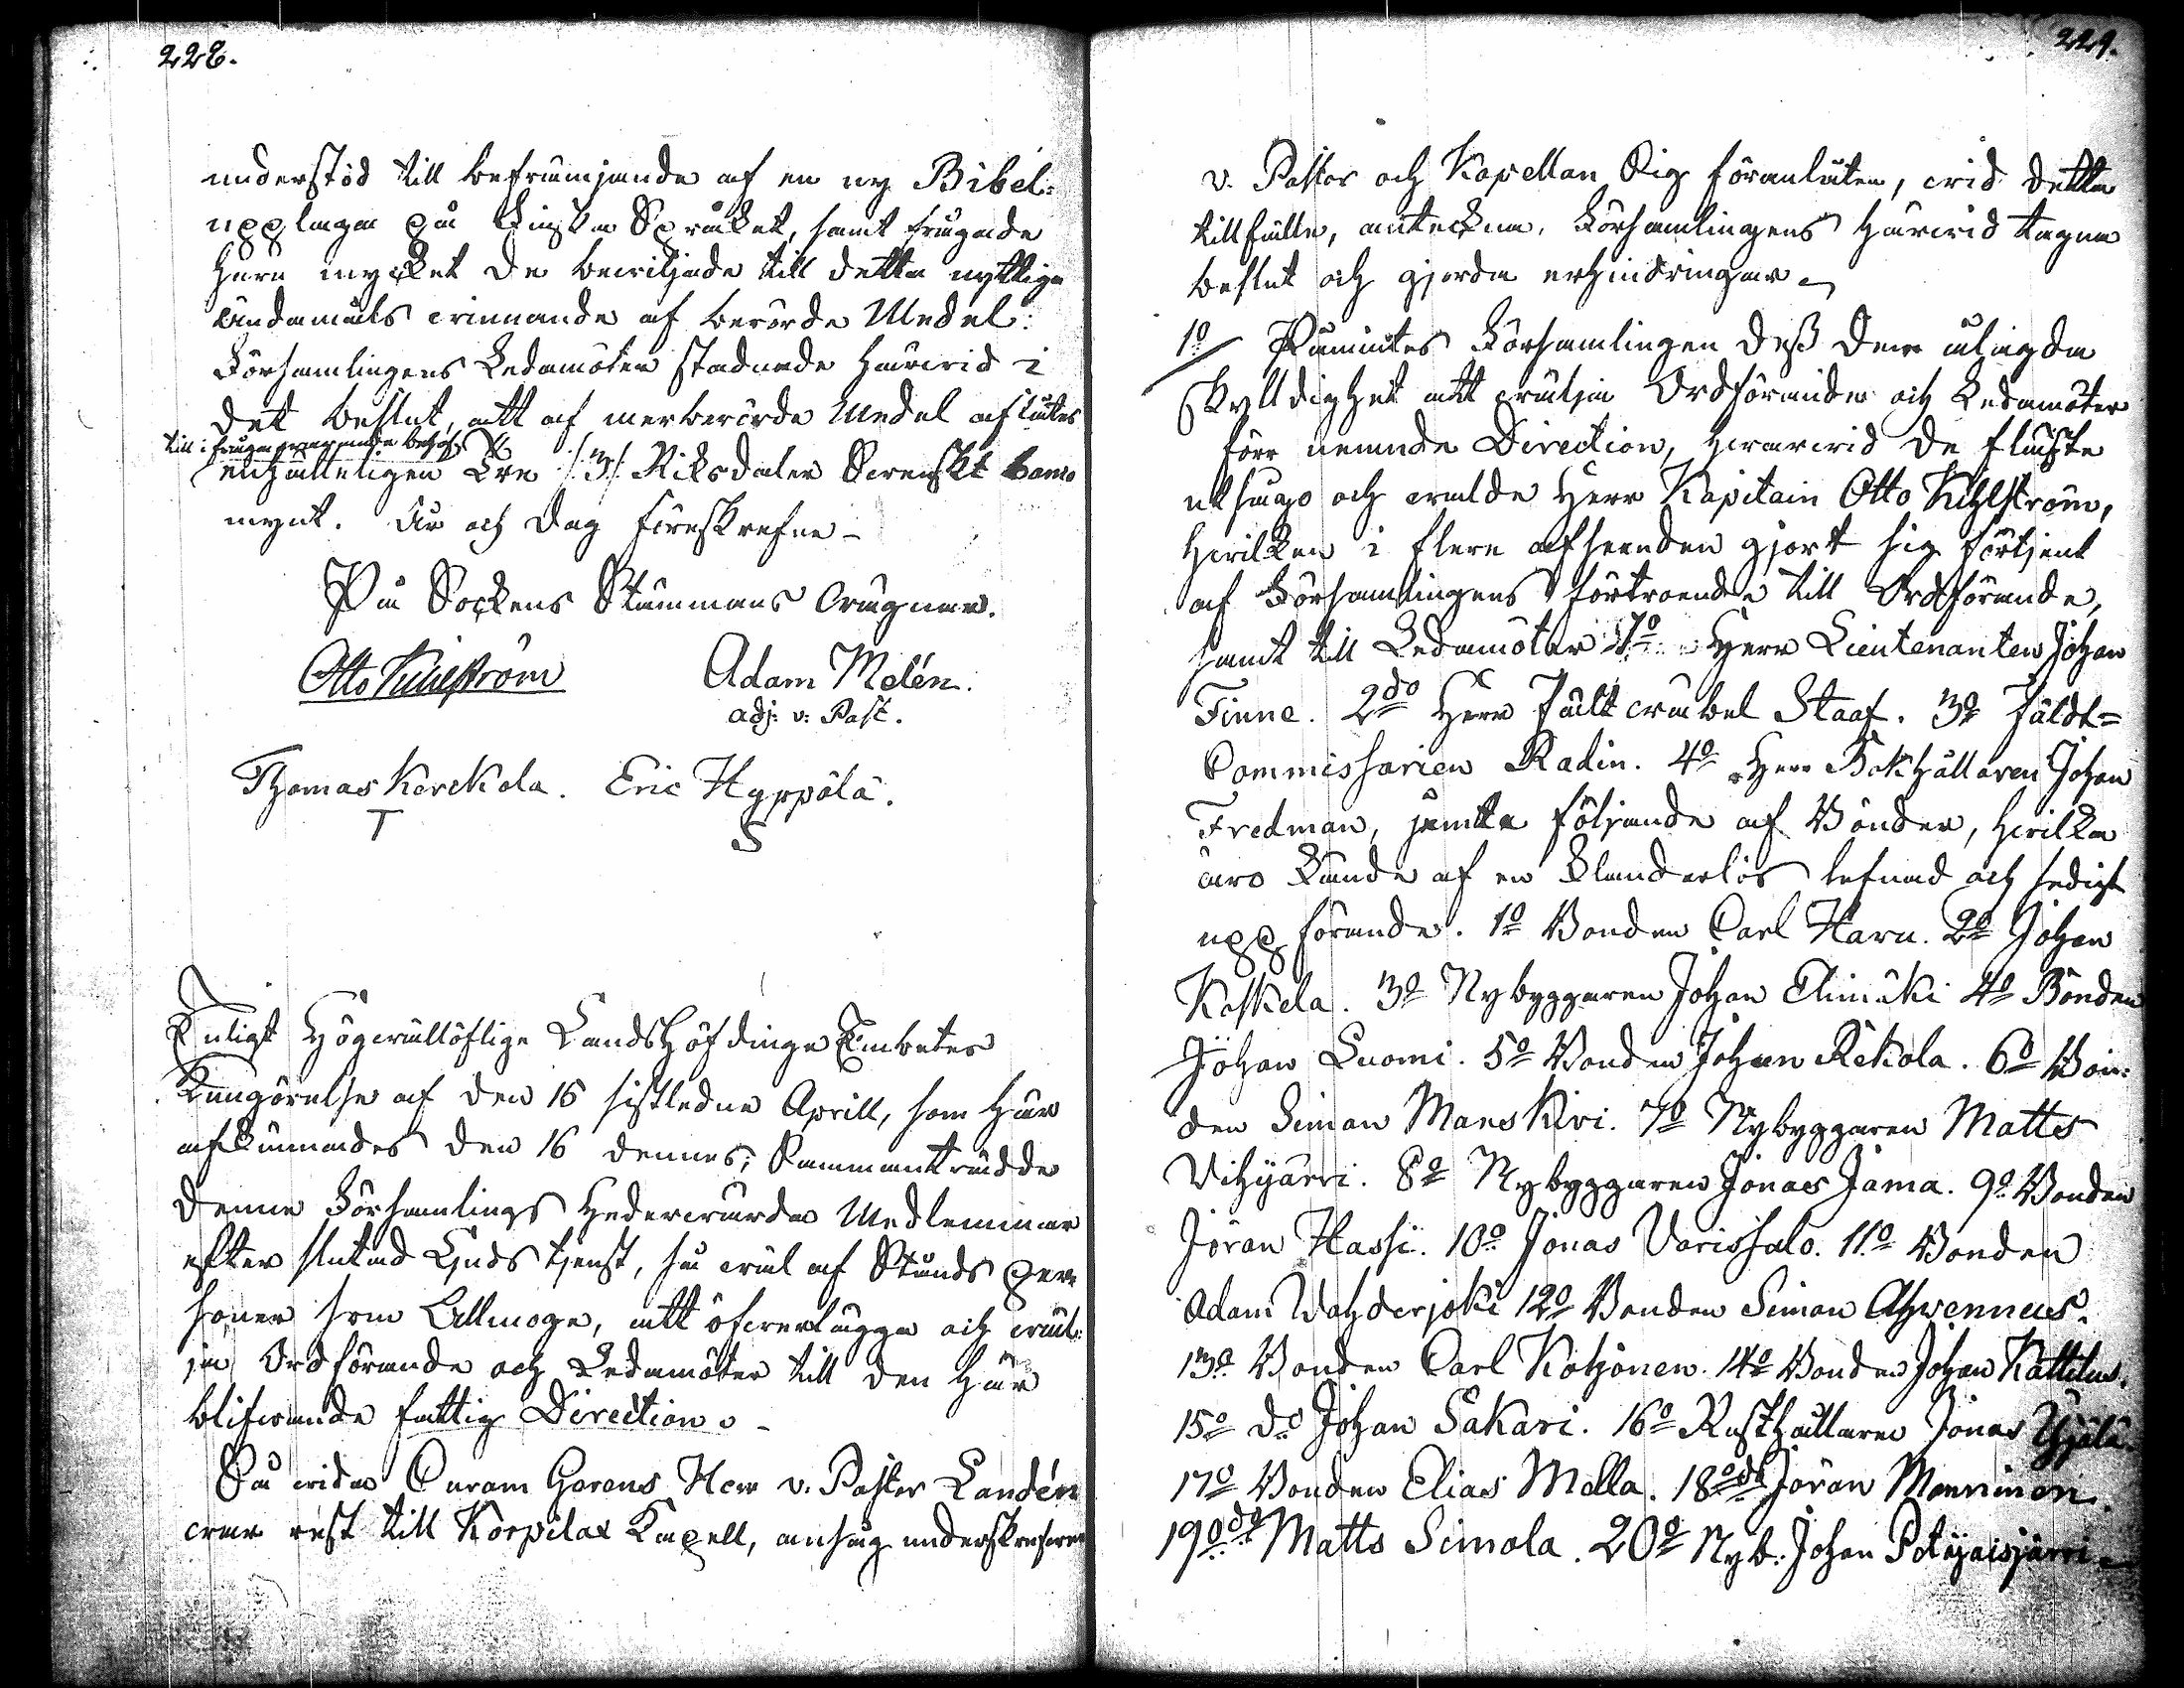 228.
understöd till befrämjande af en ny Bibel-
upplaga på Finska Språket, samt frågade
huru mycket de beviljade till detta nyttiga
Ändamåls vinnande af berörde Medel:
Församlingens Ledamöter stadnade härvid i
det beslut, att af merberörde Medel aflåtes
till i fråga varande behof
enhälleligen Tre /:3:/ Riksdaler Svenskt banco
mynt. År och dag föreskrefne –
På Sockens Stämmans Vägnar.
Otto Kuhlström Adam Melén.
adj: v: Past.
Thomas Kerckola. Eric Hyppölä.
T S
Enligt Högvällöflige Landshöfdinge Embetes
Kungörelse af den 16 sistledne Aprill, som här
afkunnades den 16 dennes, Sammanträdde
denne Församlings Hedervärda Medlemmar
efter slutad Gudstjenst, så väl af Stånds per-
soner som Allmoge, att öfverlägga och väl-
ja Ordförande och Ledamöter till den här
blifvande fattig Direction. –
Då vida Curam Gerens Herr v. Pastor Landén
var rest till Korpilax Kapell, ansåg underskrefven
229.
v. Pastor och Kapellan Sig föranlåten, vid detta
tillfälle, anteckna, Församlingens härvid tagna
beslut och gjorda erhindringar
1o Påmintes Församlingen dess den ålagda
skylldighet att välja Ordförande och Ledamöter
förr nemnde Direction, hvarvid de fläste
utsågo och valde Herr Kapitain Otto Kuhlström,
hvilken i flere afseenden gjort sig förtjent
af Församlingens förtroende till Ordförande,
samt till Ledamöter 1o Herr Lieutenanten Johan
Finne. 2do Herr Fältväbel Staaf. 3o Fäldt=
Commissarien Radin. 4o Herr Bokhållaren Johan
Fredman, jemte följande af Bönder, hvilka
äro kände af en klanderlös lefnad och sedigt
uppförande. 1o Bonden Carl Haru. 2o Johan
Koskela. 3o Nybyggaren Johan Elimäki 4o Bonden
Johan Luomi. 5o Bonden Johan Rekola. 6o Bon-
den Simon Manskivi. 7o Nybyggaren Matts
Vihijärvi. 8o Nybyggaren Jonas Jama. 9o Bonden
Jöran Hassi. 10o Jonas Varissalo. 11o Bonden
Adam Wahderjoki 12o Bonden Simon Ahvenneus.
13o Bonden Carl Kohjonen. 14o Bonden Johan Kattelus.
15o do Johan Sakari. 16o Rusthållaren Jonas Yijälä.
17o Bonden Elias Mella. 18o do Jöran Manninen.
19o do Matts Simola. 20o Nyb. Johan Potijaisjärvi